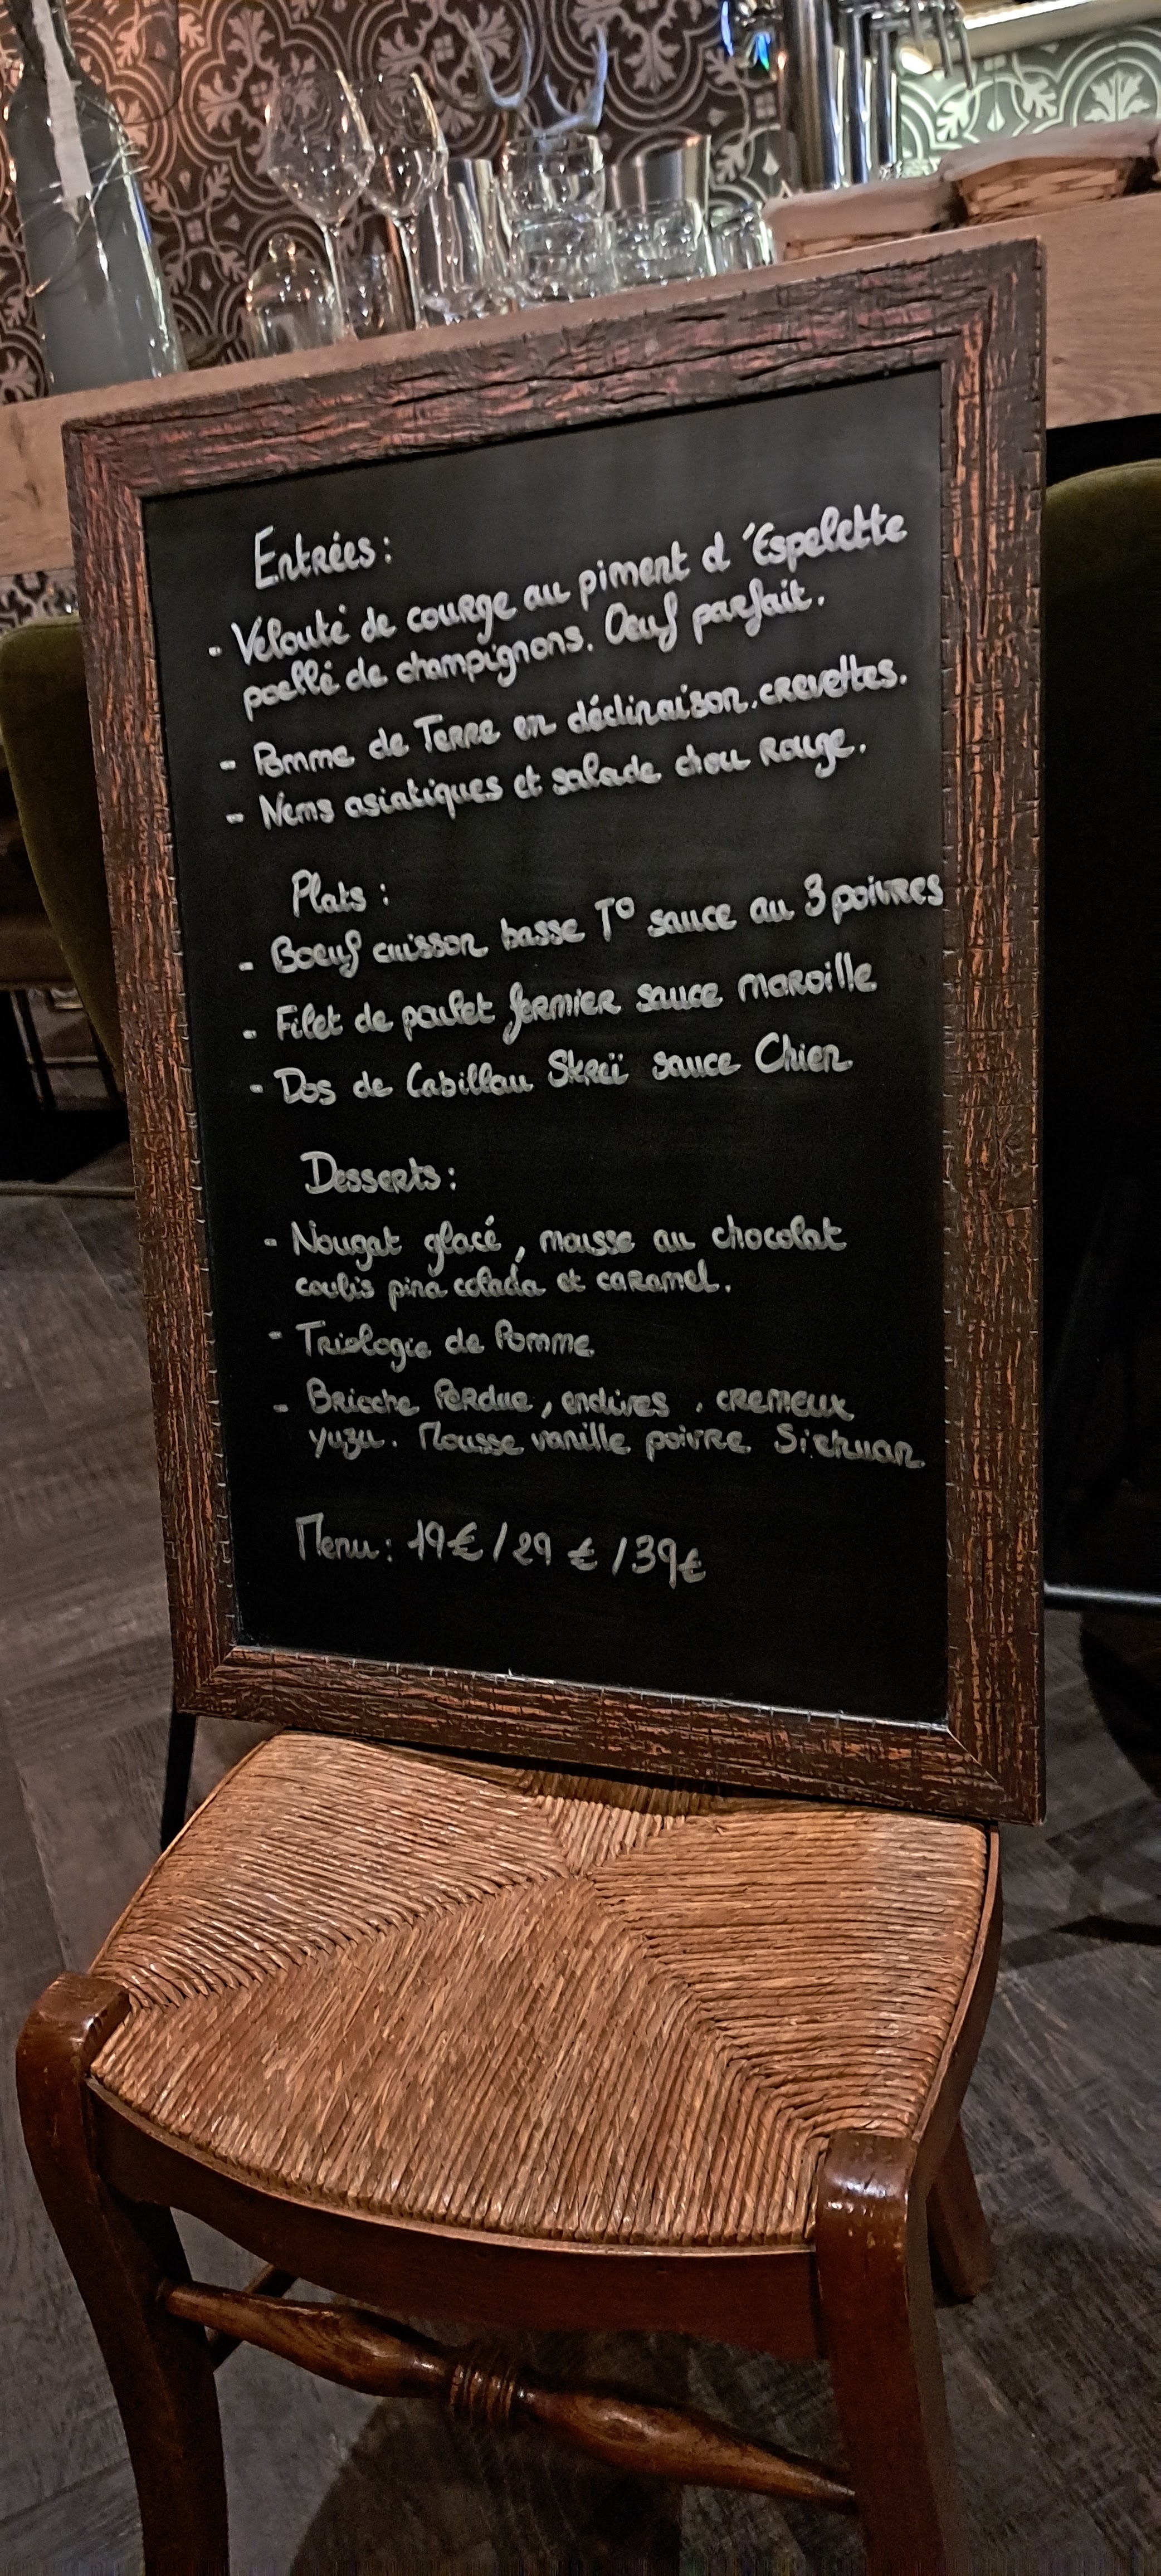 Entrées :
- Velouté de courge au piment d'Espelette
poellé de champignons. Oeuf parfait.
- Pomme de Terre en déclinaison. crevettes.
- Nems asiatiques et salade chou rouge.
Plats :
- Boeuf cuisson basse T° sauce au 3 poivres
- Filet de poulet fermier sauce maroille
- Dos de Cabillau Skreï sauce Chien
Desserts :
- Nougat glacé, mousse au chocolat
coulis pina colada et caramel.
- Triologie de Pomme
- Brioche Perdue, endives, cremeux
yuzu. Mousse vanille poivre Sichuan
Menu : 19€ / 29€ / 39€